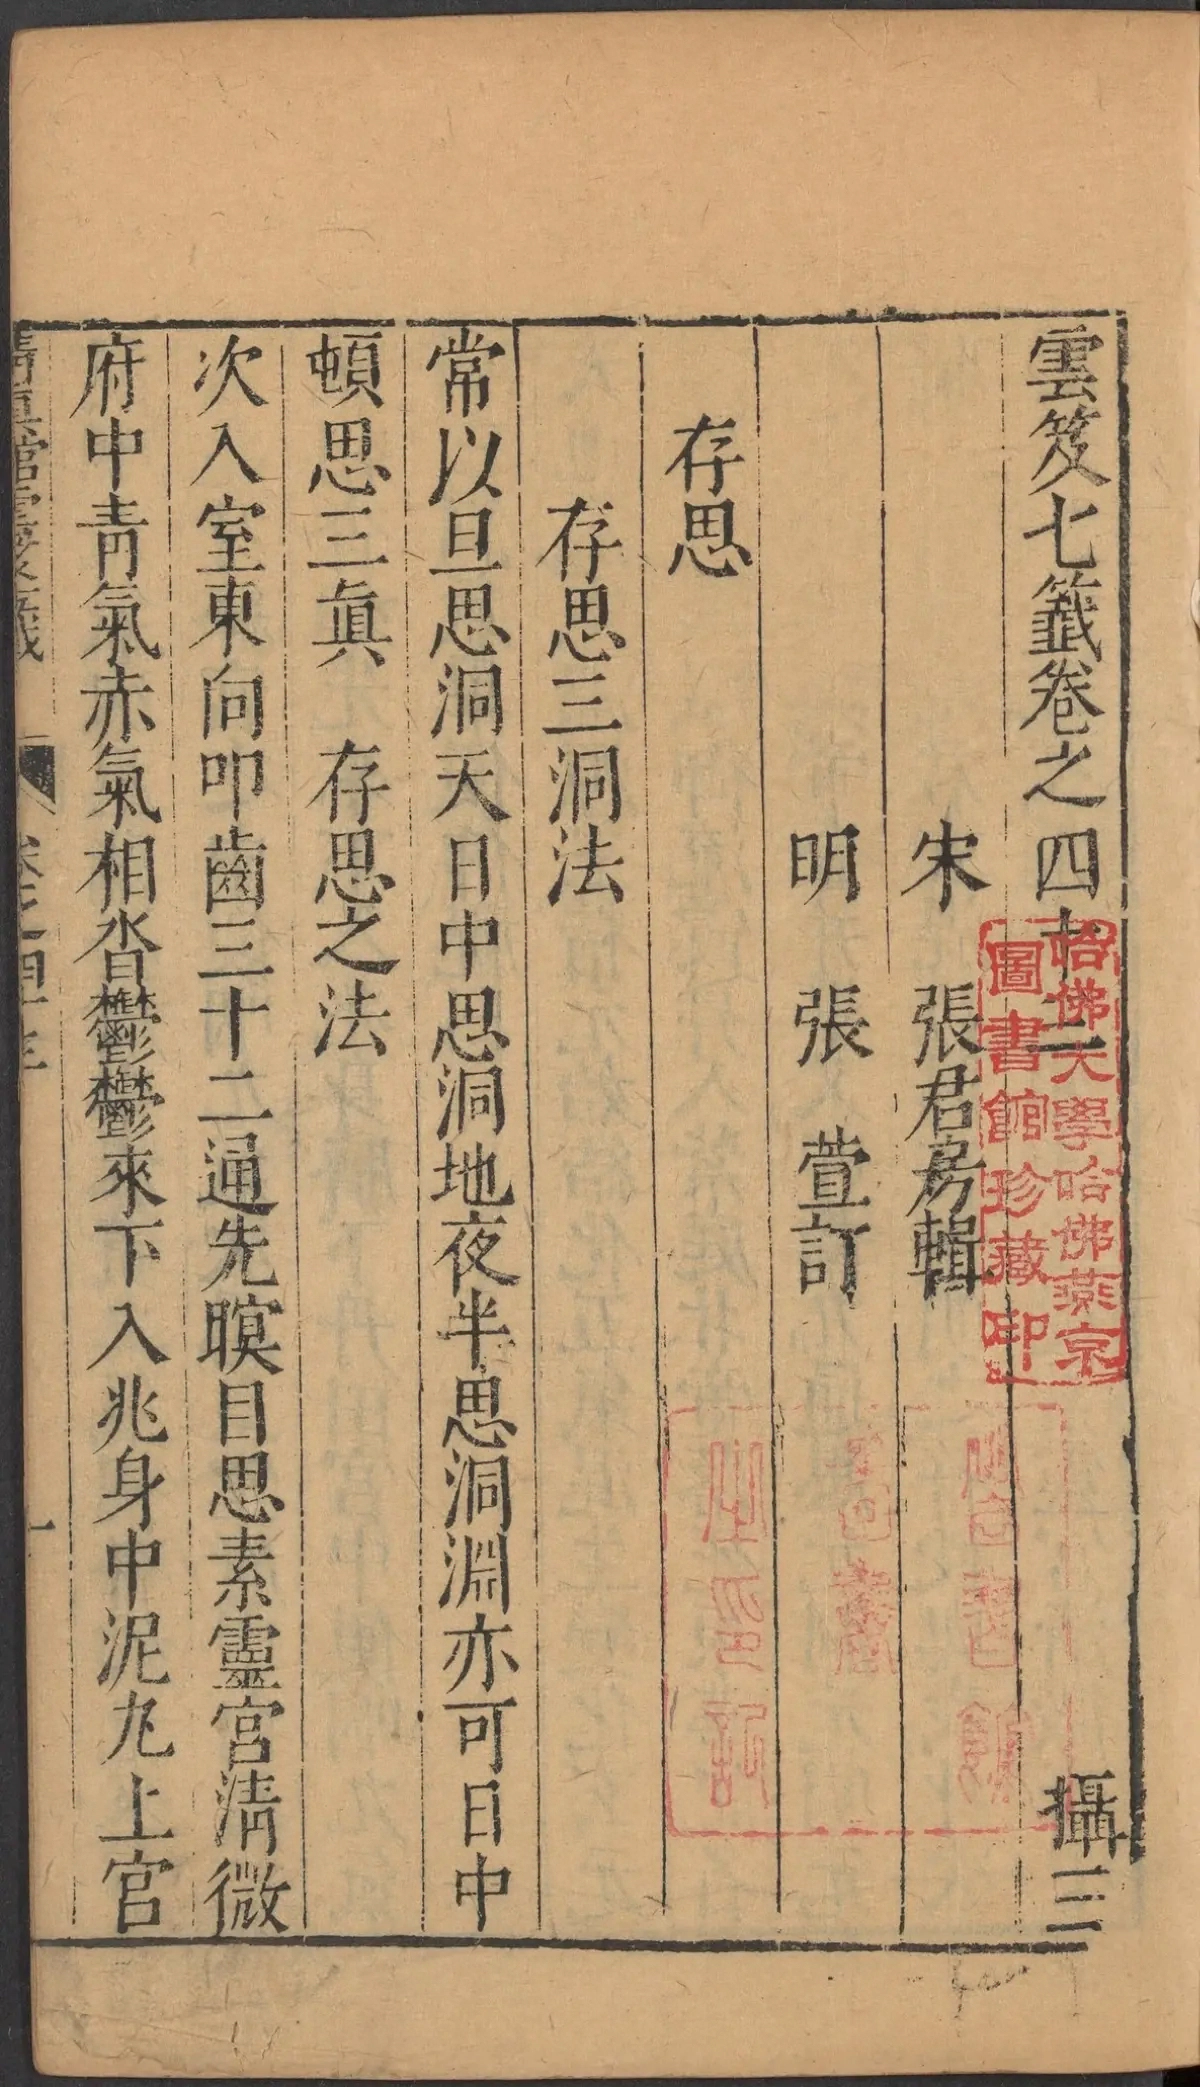 雲笈七籤卷之四十三
攝三
宋 張君房輯
明 張 萱訂
存思
存思三洞法
常以旦思洞天日中思洞地夜半思洞淵亦可日中
頓思三眞 存思之法
次入室東向叩齒三十二通先瞑目思素靈宮清微
府中青氣赤氣相沓鬱鬱來下入兆身中泥丸上宮
一
哈佛大學哈佛燕京
圖書館珍藏印